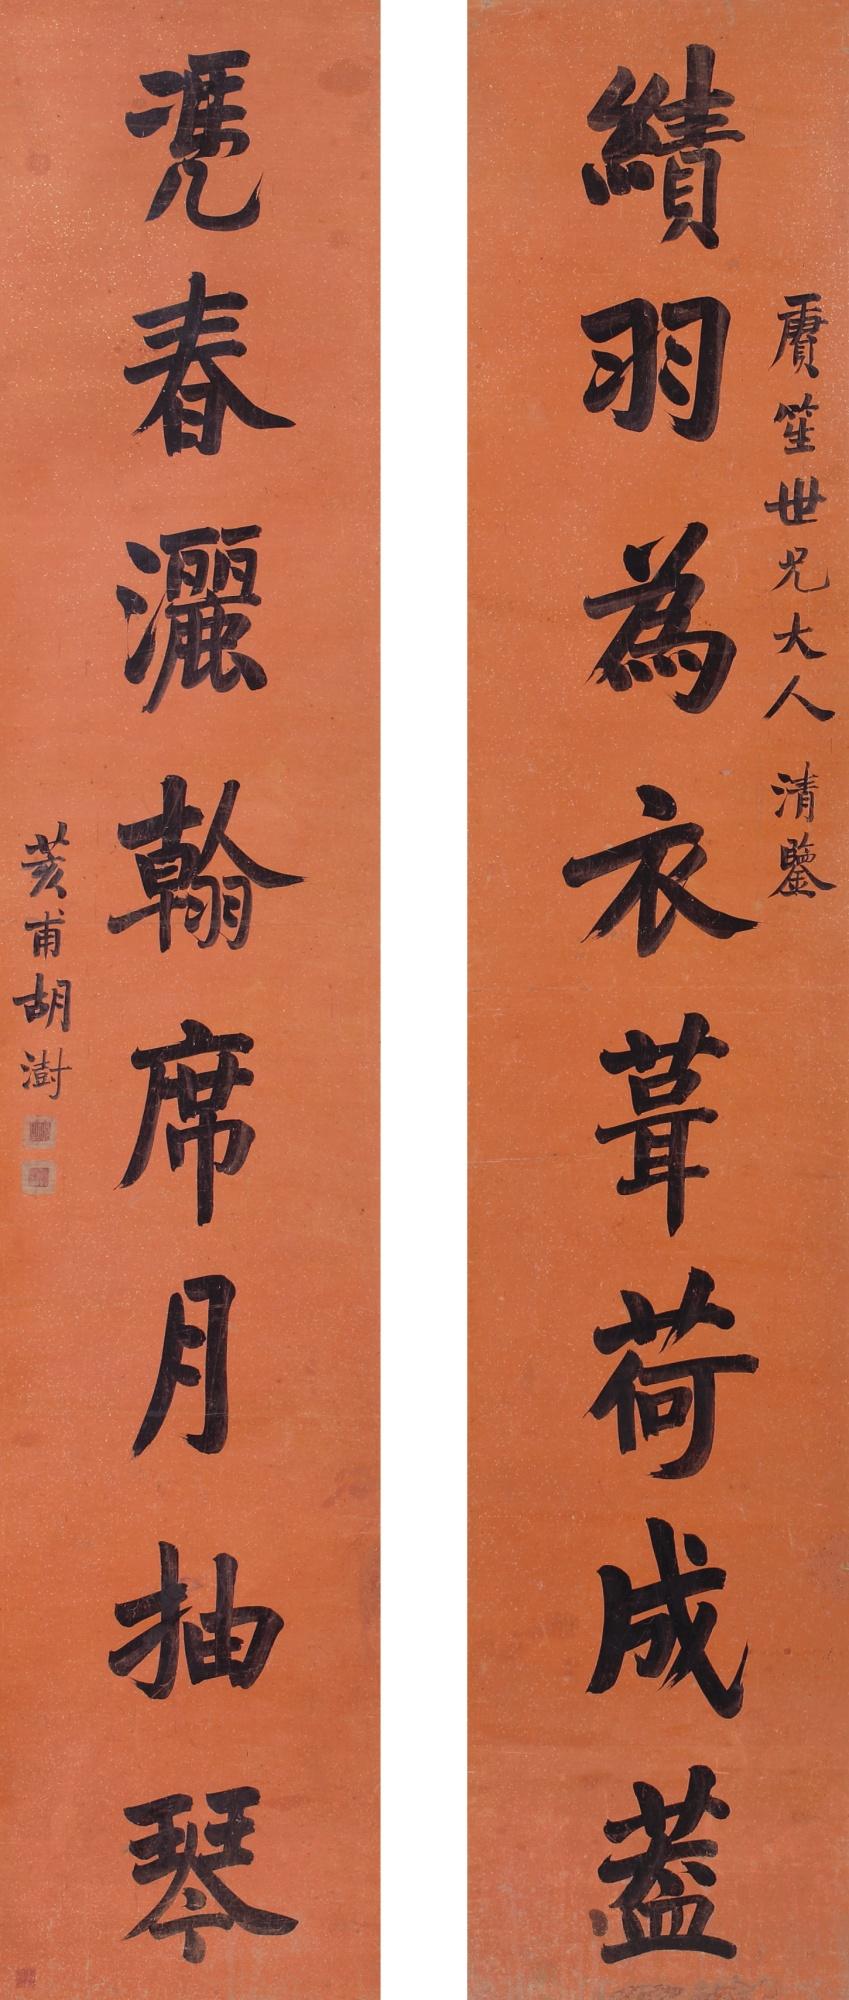 賡笙世兄大人 清鑒
績羽為衣葺荷成蓋
凴春灑翰席月抽琴
荄甫胡澍